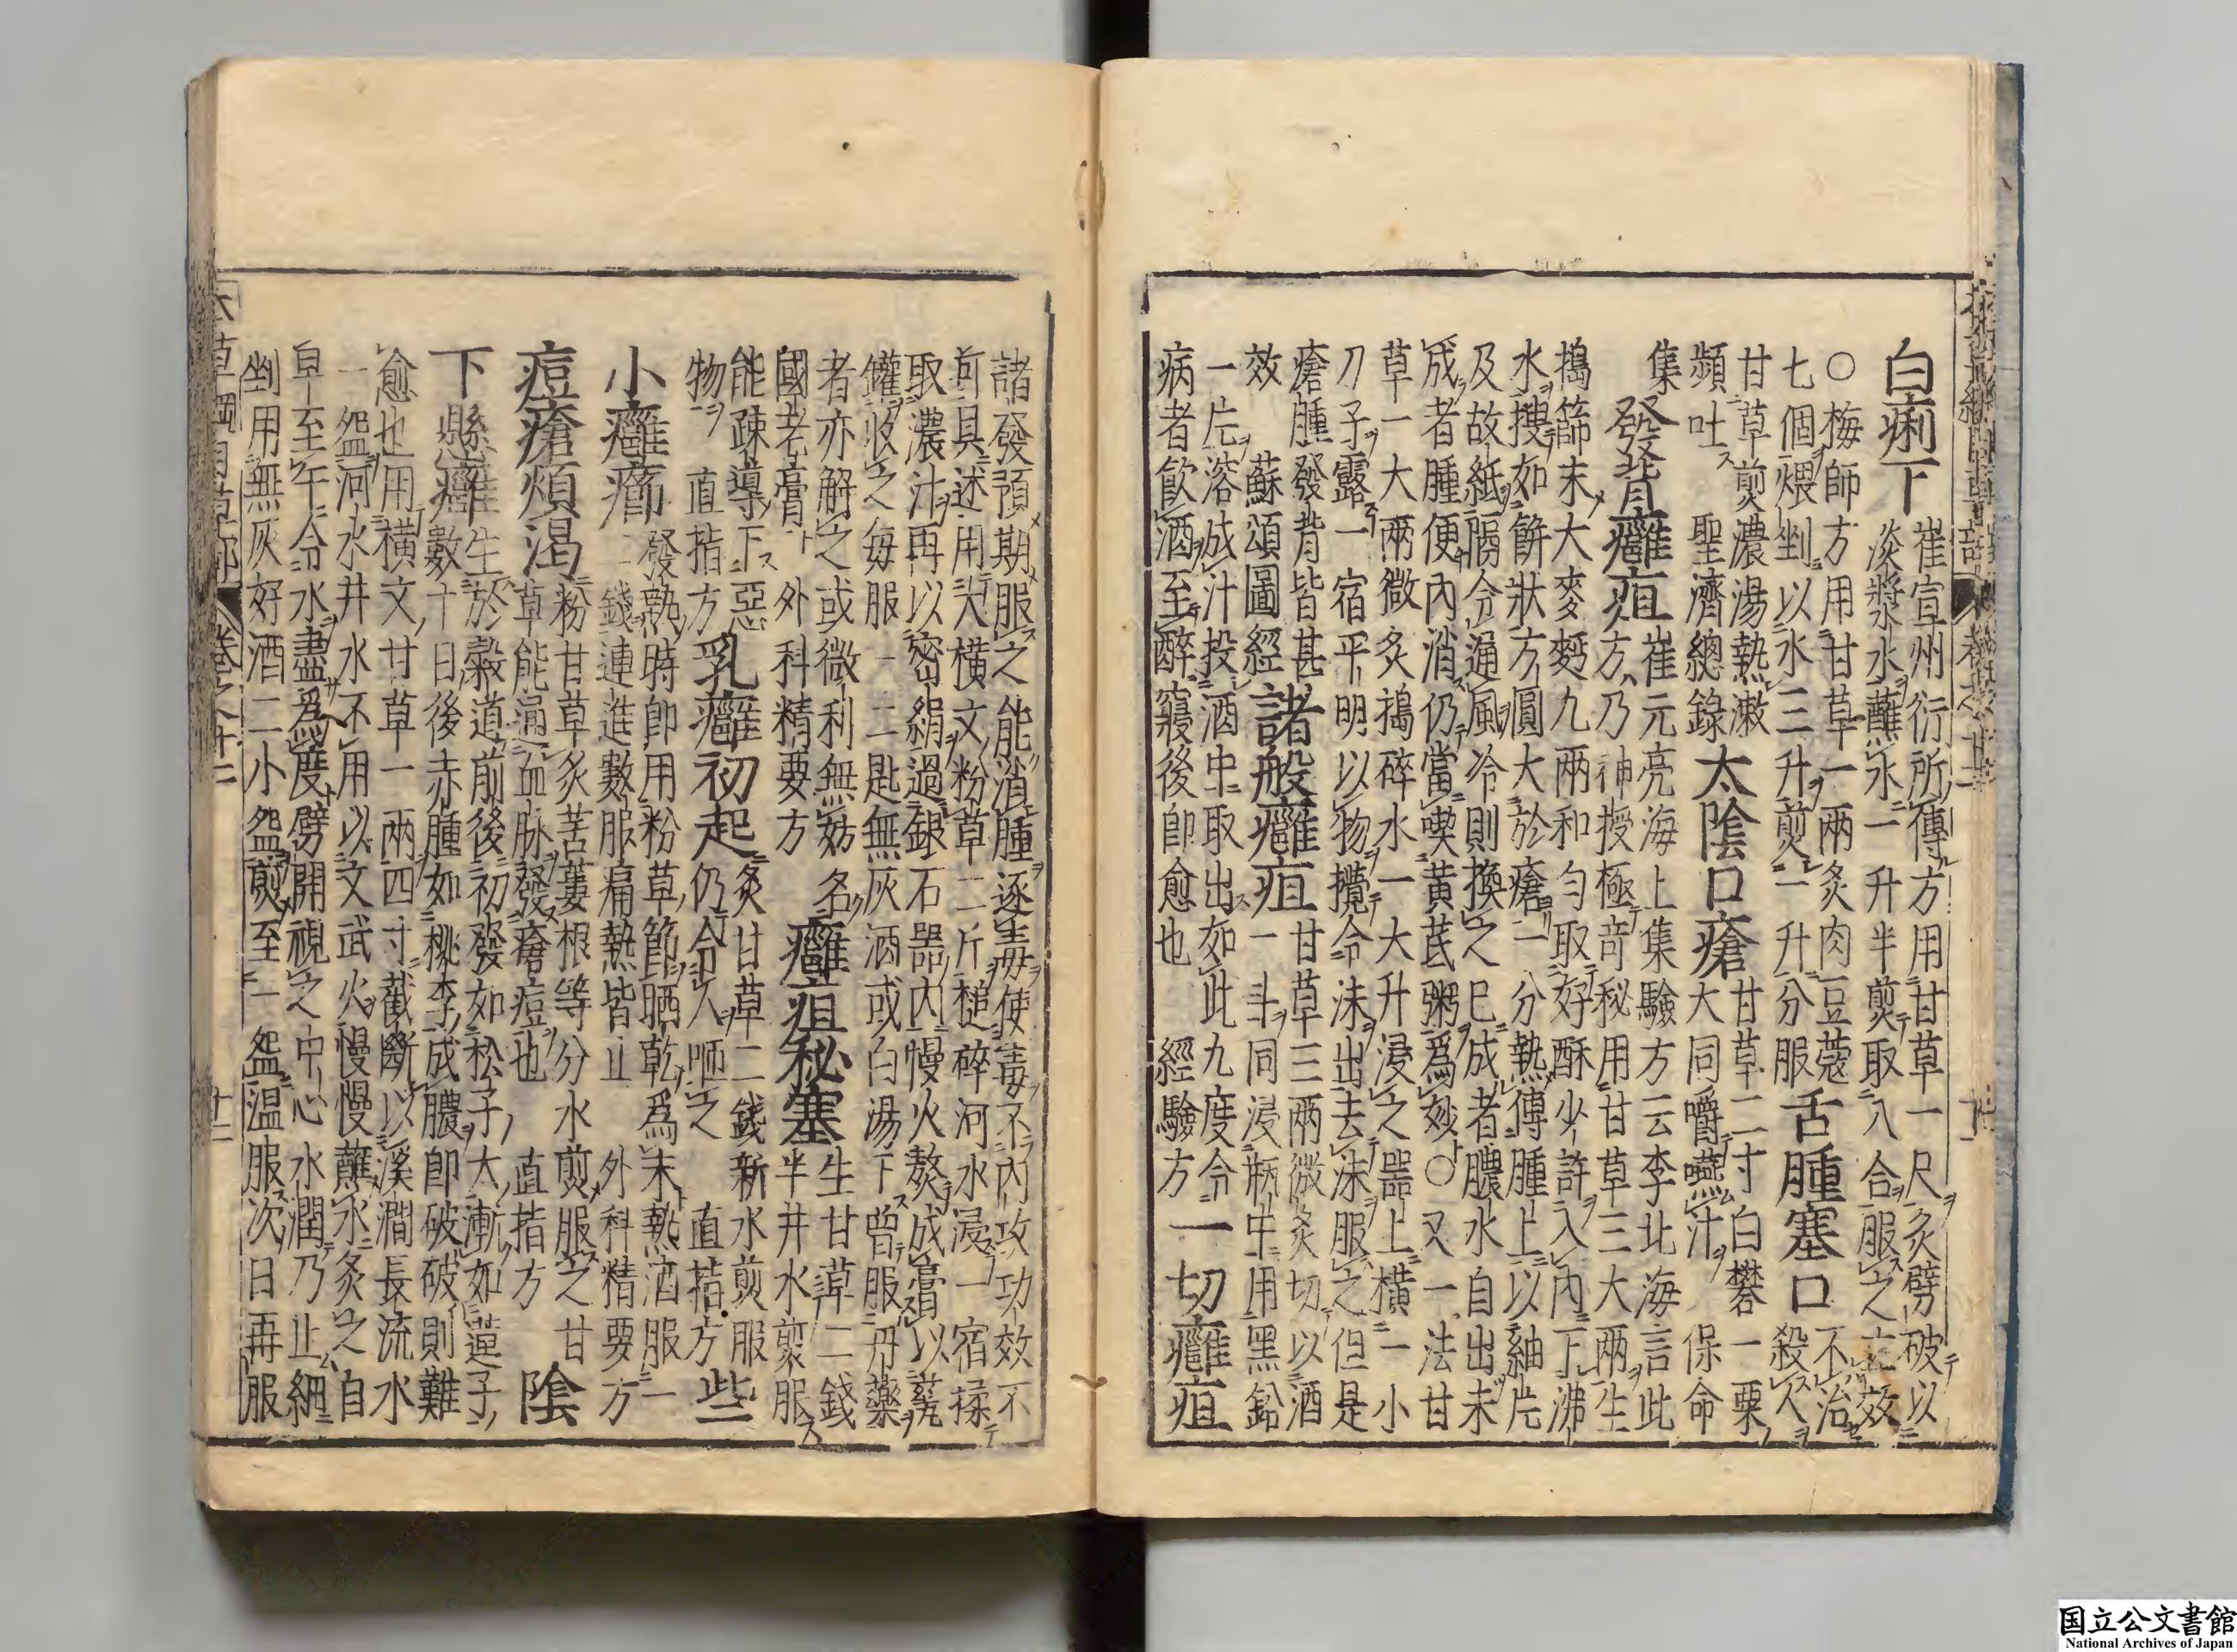 白痢下崔宣州衍所傳方用甘草一尺炙劈破以
淡漿水蘸水一升半煎取八合服之立效
○梅師方用甘草一兩炙肉豆蔻
七個煨剉以水三升煎一升分服舌腫塞口不治殺人
甘草煎濃湯熱漱
頻吐聖濟總錄太陰口瘡甘草二寸白礬一栗
大同嚼嚥汁保命
集發背癰疽崔元亮海上集驗方云李北海言此
方乃神授極奇秘用甘草三大兩生
搗篩末大麥麪九兩和勻取好酥少許入內下沸
水搜如餅狀方圓大於瘡一分熱傅腫上以紬片
及故紙隔令通風冷則換之已成者膿水自出未
成者腫便內消仍當喫黃芪粥爲妙○又一法甘
草一大兩微炙搗碎水一大升浸之器上橫一小
刀子露一宿平明以物攪令沫出去沫服之但是
瘡腫發背皆甚
效蘇頌圖經諸般癰疽甘草三兩微炙切以酒
一斗同浸瓶中用黑鉛
一片溶成汁投酒中取出如此九度令
病者飮酒至醉寢後卽愈也經驗方一切癰疽
諸發預期服之能消腫逐毒使毒不內攻功效不
可具述用大橫文粉草二斤槌碎河水浸一宿揉
取濃汁再以密絹過銀石器內慢火熬成膏以甆
罐收之每服一二匙無灰酒或白湯下曾服丹藥
者亦解之或微利無妨名
國老膏外科精要方癰疽秘塞生甘草二錢
半井水煎服
能疎導下惡
物直指方乳癰初起炙甘草二錢新水煎服
仍令人咂之直指方些
小癰癤發熱時卽用粉草節晒乾爲末熱酒服一
二錢連進數服痛熱皆止外科精要方
痘瘡煩渴粉甘草炙栝蔞根等分水煎服之甘
草能通血脉發瘡痘也直指方陰
下懸癰生於穀道前後初發如松子大漸如蓮子
數十日後赤腫如桃李成膿卽破破則難
愈也用橫文甘草一兩四寸截斷以溪澗長流水
一盌河水井水不用以文武火慢慢蘸水炙之自
早至午令水盡爲度劈開視之中心水潤乃止細
剉用無灰好酒二小盌煎至一盌溫服次日再服
国立公文書館
National Archives of Japan